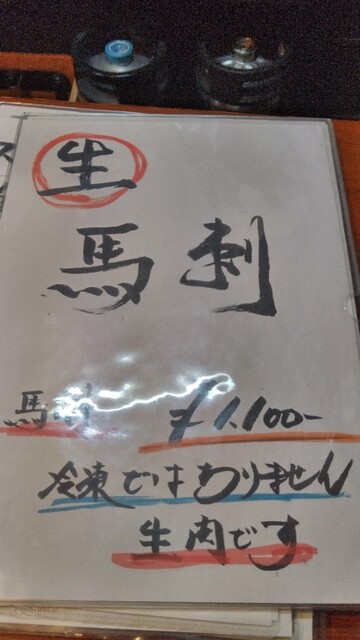 生
馬刺
馬刺 ¥1.100-
冷凍ではありません
生肉です